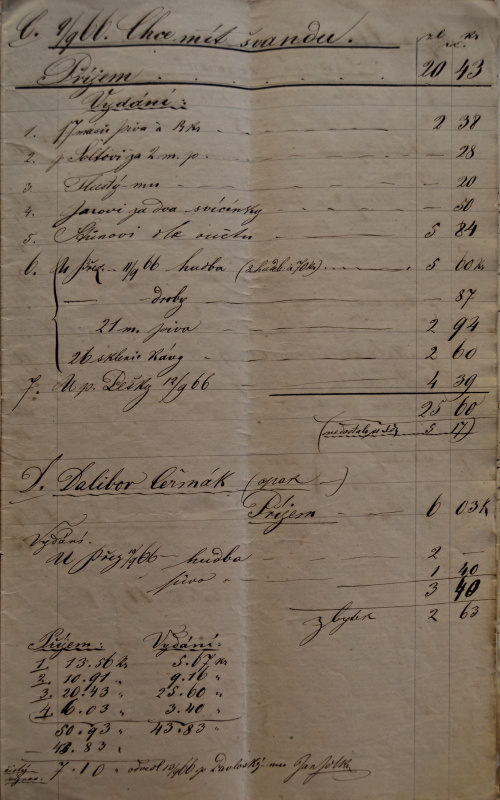 C. 9/9 66. Chce mít švandu. zl kr
Příjem . . . . . . 20 43
Vydání:
1. 17 piva à 14 kr 2 38
2. p za 2 m. p. — 28
3. mu — 20
4. Jarovi za dva svícínky — 50
5. dle 5 84
6. U Přez. 11/9 66 hudba (8 hudeb à 70 kr) 5 60 kr
— droby 87
21 m. piva 2 94
26 sklenic kávy 2 60
7. U p. Dešky 12/9 66 4 39
25 60
(nedostalo se 5 17)
D. Dalibor Čeřmák (opak —)
Příjem 6 03 k
Vydání.
U Přez 12/9 66 — hudba 2 —
pivo 1 40
3 40
zbytek 2 63
Příjem: Vydání:
1. 13.56 kr 5.67 kr
2. 10.91 " 9.16 "
3. 20.43 " 25.60 "
4. 6.03 " 3.40 "
50.93 " 43.83 "
— 43.83 "
čistý 7.10 " odvedl 12/9 66 p.